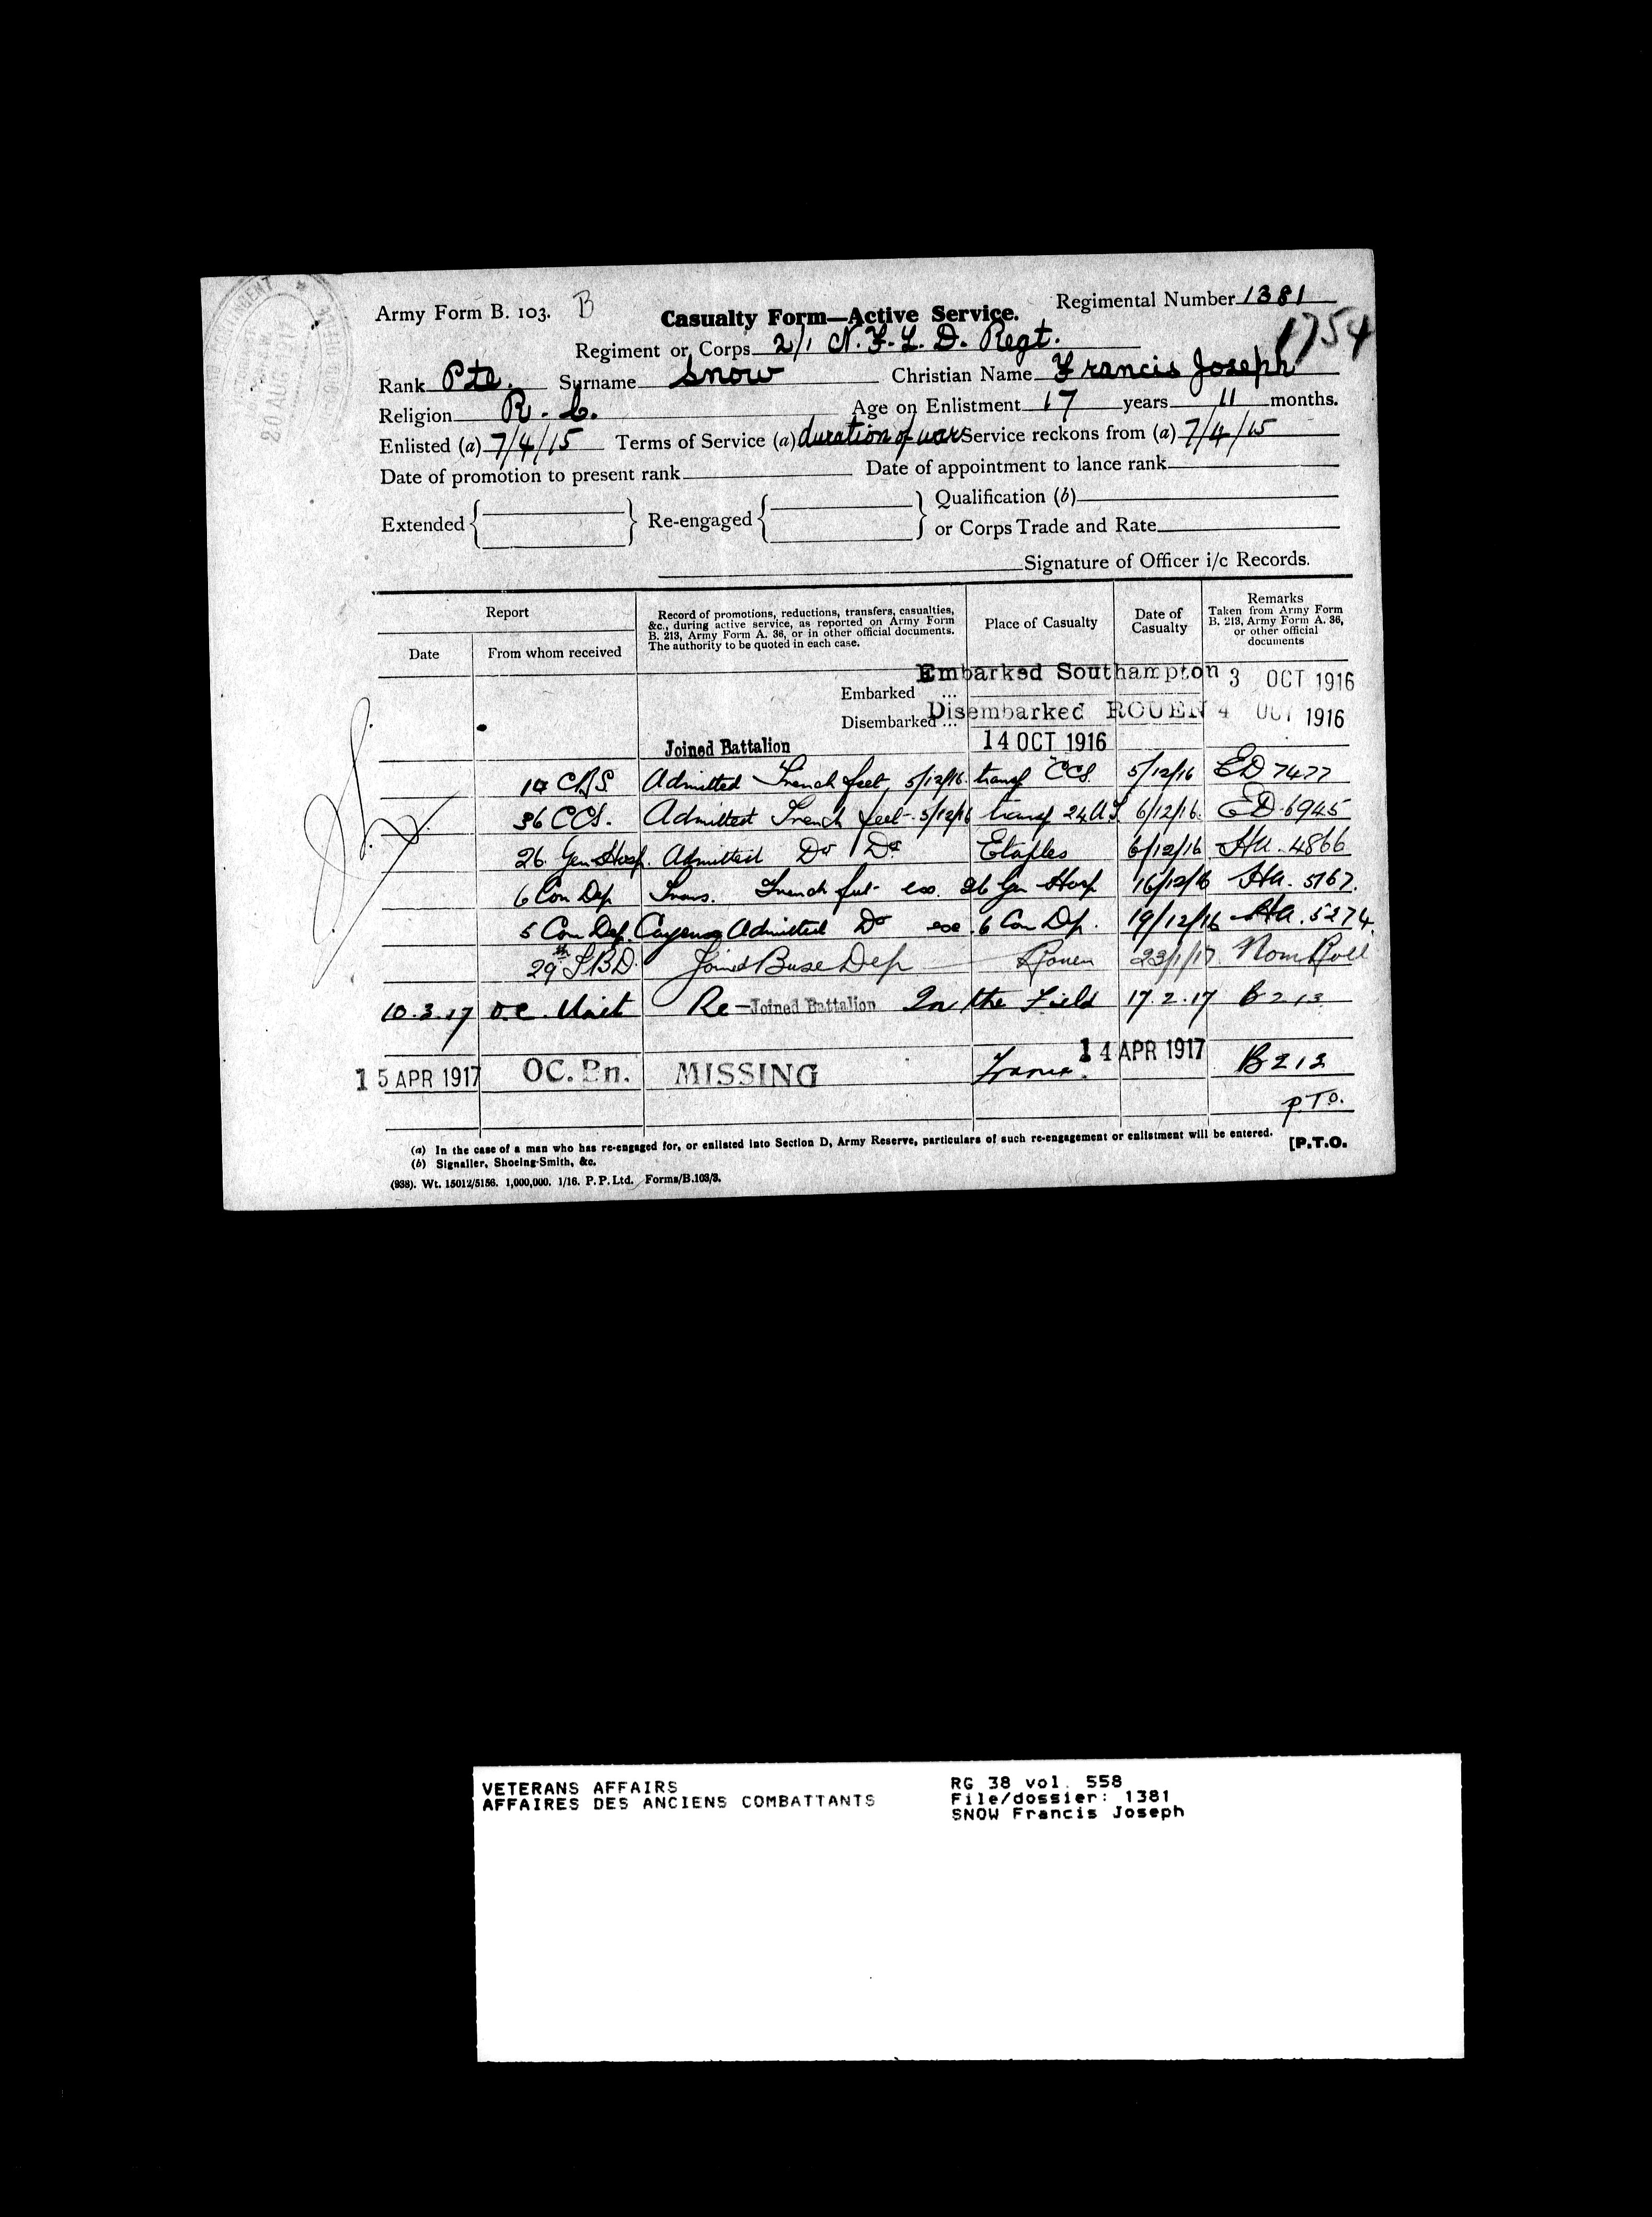 Army Form B. 103. B
Casualty Form—Active Service.
Regimental Number 1381
1754
Regiment or Corps 2/1 N.F.L.D. Regt.
Rank Pte. Surname Snow Christian Name Francis Joseph
Religion R. C. Age on Enlistment 17 years 11 months.
Enlisted (a) 7/4/15 Terms of Service (a) duration of war Service reckons from (a) 7/4/15
Date of promotion to present rank Date of appointment to lance rank
Extended { } Re-engaged { } Qualification (b)
or Corps Trade and Rate
Signature of Officer i/c Records.
Report
Date From whom received
Record of promotions, reductions, transfers, casualties,
&c., during active service, as reported on Army Form
B. 213, Army Form A. 36, or in other official documents.
The authority to be quoted in each case.
Place of Casualty
Date of
Casualty
Remarks
Taken from Army Form
B. 213, Army Form A. 36,
or other official
documents
Embarked ... Embarked Southampton 3 OCT 1916
Disembarked ... Disembarked ROUEN 4 OCT 1916
Joined Battalion 14 OCT 1916
Admitted Trench feet, 5/12/16. transf CCS. 5/12/16 ED 7477
36 CCS. Admitted Trench feet - 5/12/16 transf 24 A.T. 6/12/16. ED 6945
26 Gen Hosp. Admitted Do Do Etaples 6/12/16 Ha. 4866
6 Con Dep Trans. Trench feet 26 Gn Hosp 16/12/16 Ha. 5167.
5 Con Dep. Cayeux Admitted Do 6 Con Dp. 19/12/16 Ha. 5274.
29th I.B.D. Joined Base Dep Rouen 23/1/17. Nom Roll
10.3.17 O.C. Unit Re-Joined Battalion In the Field 17.2.17 B213
15 APR 1917 OC. Bn. MISSING France. 14 APR 1917 B213
P.T.O.
(a) In the case of a man who has re-engaged for, or enlisted into Section D, Army Reserve, particulars of such re-engagement or enlistment will be entered.
(b) Signaller, Shoeing-Smith, &c.
[P.T.O.
(938). Wt. 15012/5156. 1,000,000. 1/16. P. P. Ltd. Forms/B.103/3.
20 AUG 1917
VETERANS AFFAIRS
AFFAIRES DES ANCIENS COMBATTANTS
RG 38 vol. 558
File/dossier: 1381
SNOW Francis Joseph